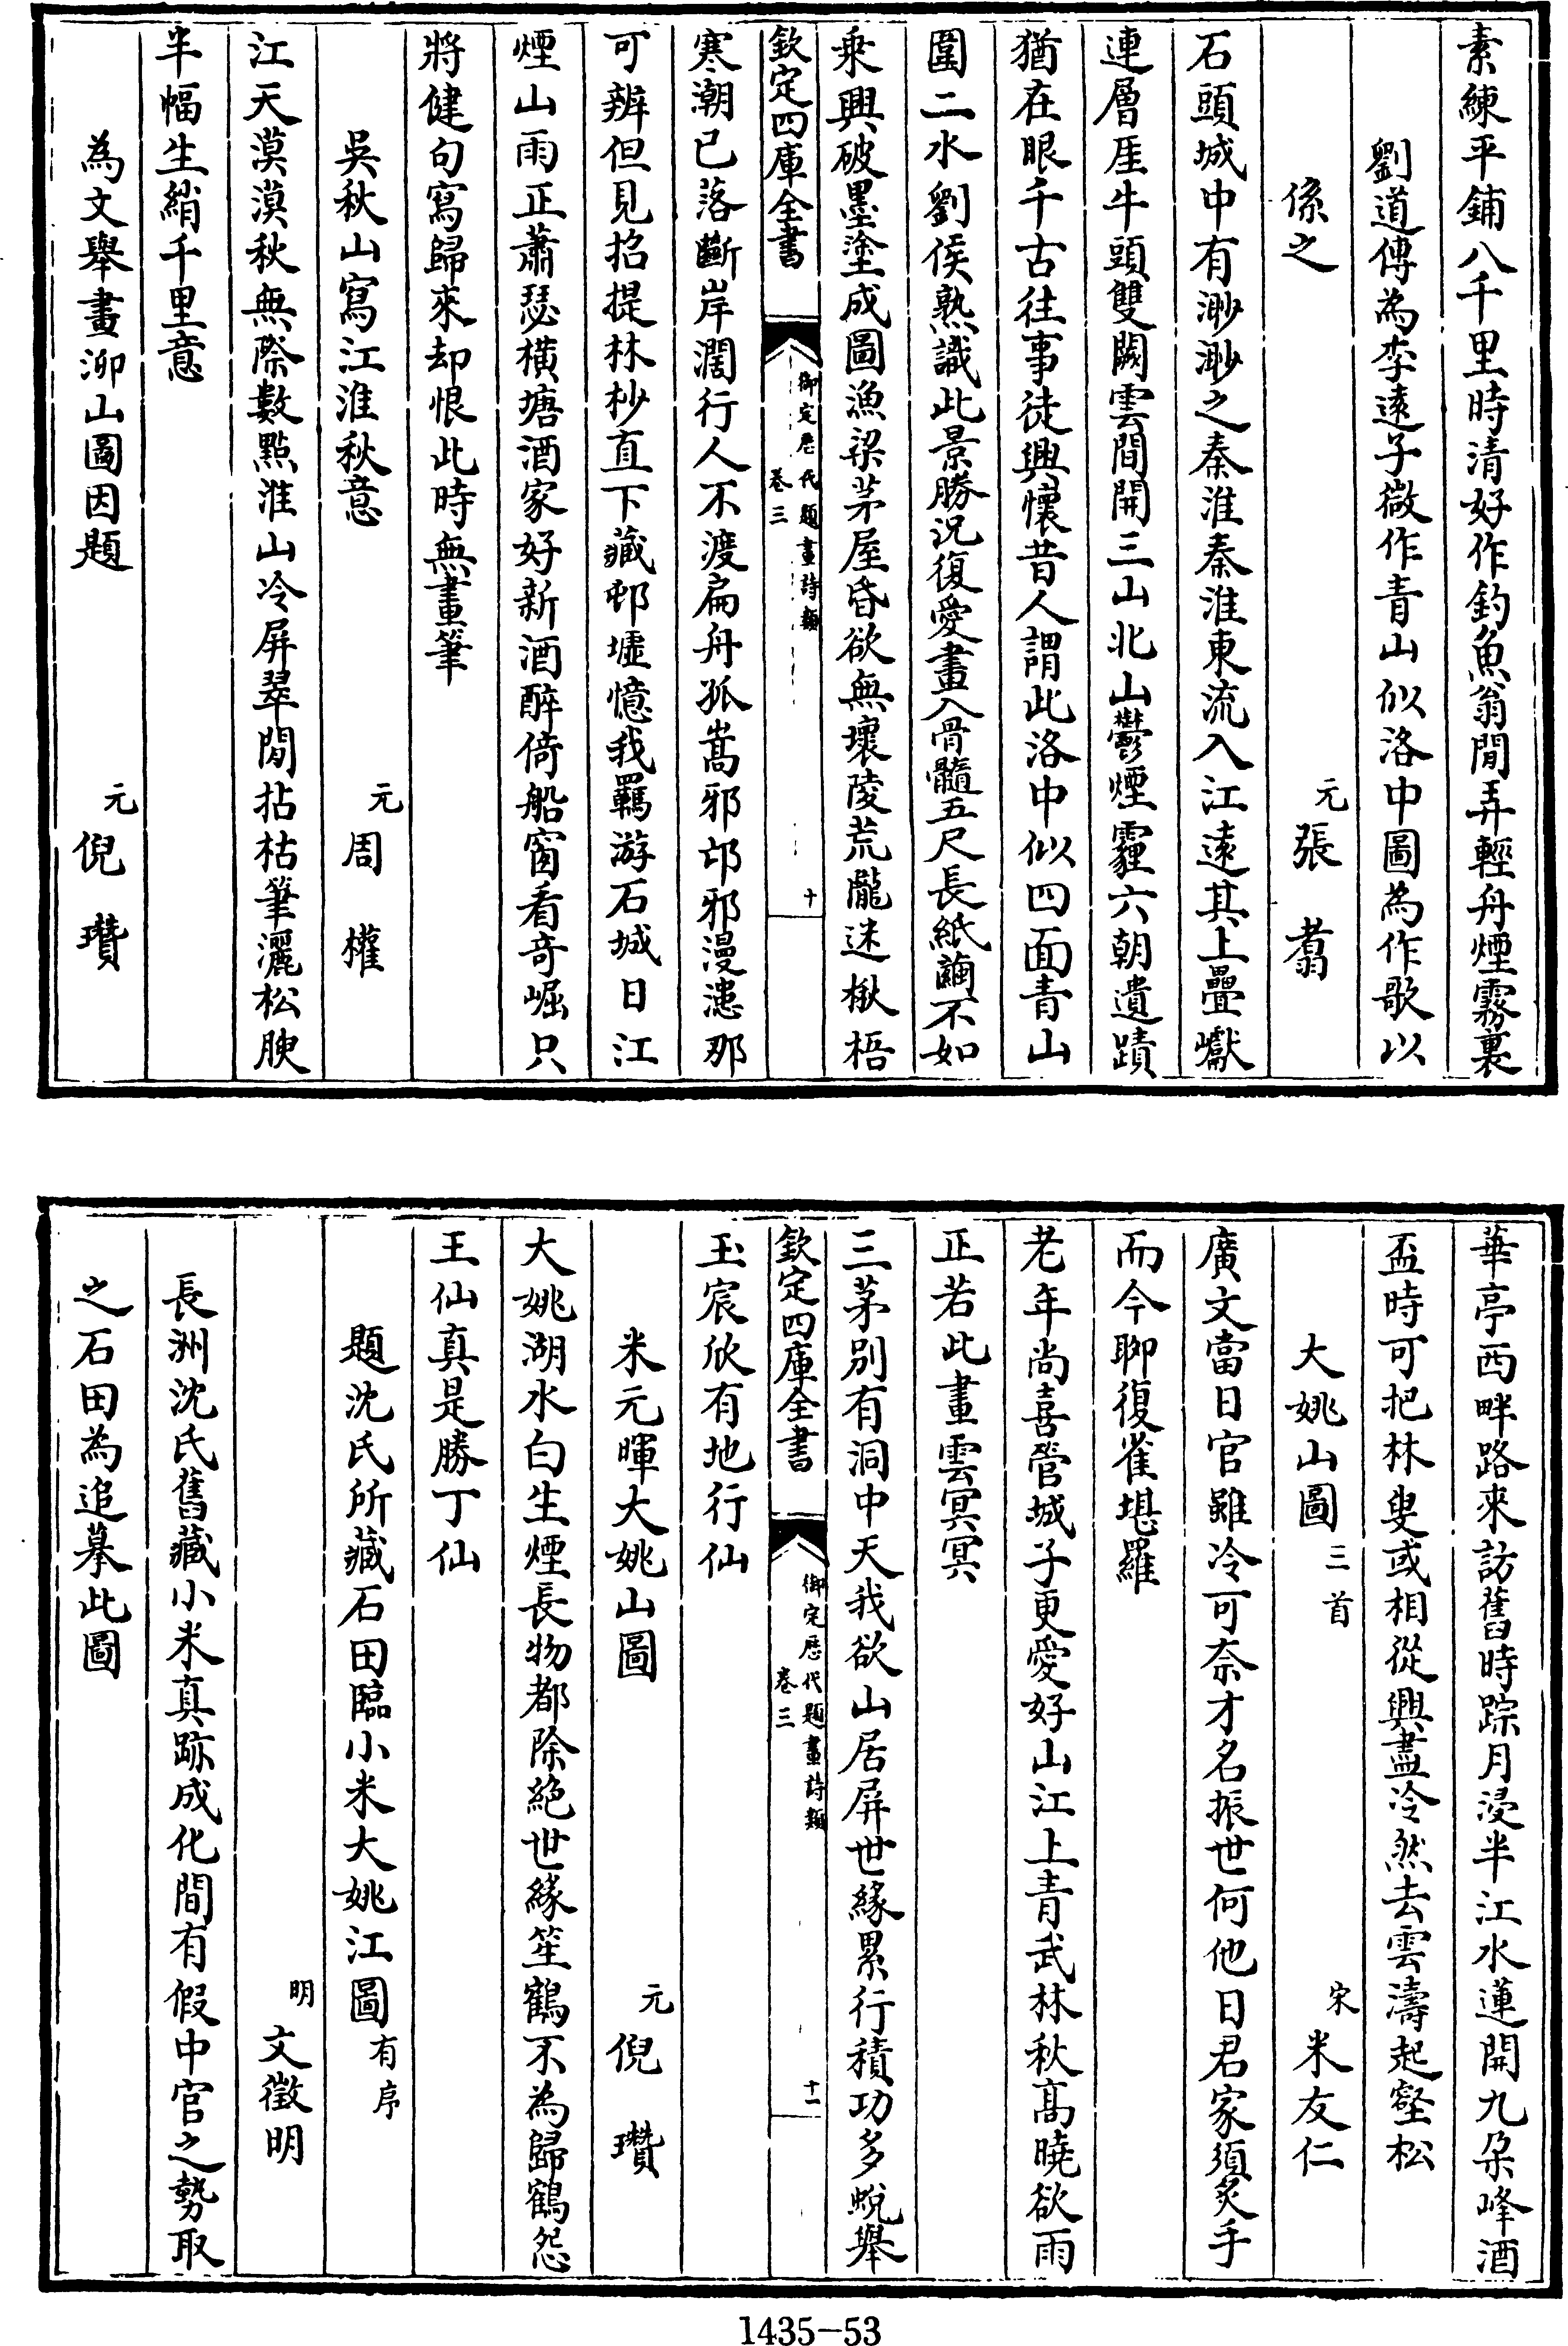 素練平鋪八千里時清好作釣魚翁閒弄輕舟煙霧裏
劉道傳為李遠子微作青山似洛中圖為作歌以
係之
元張翥
石頭城中有渺渺之秦淮秦淮東流入江遠其上疊巘
連層厓牛頭雙闕雲間開三山北山鬱煙霾六朝遺蹟
猶在眼千古往事徒興懷昔人謂此洛中似四面青山
圍二水劉侯熟識此景勝況復愛畫入骨髓五尺長紙繭不如
乘興破墨塗成圖漁梁茅屋昏欲無壞陵荒隴迷楸梧
欽定四庫全書
御定歷代題畫詩類
卷三
十
寒潮已落斷岸濶行人不渡扁舟孤嵩邪邙邪漫漶那
可辨但見招提林杪直下藏邨墟憶我羈游石城日江
煙山雨正蕭瑟橫塘酒家好新酒醉倚船窗看奇崛只
將健句寫歸來却恨此時無畫筆
吳秋山寫江淮秋意
元周權
江天漠漠秋無際數點淮山冷屏翠閒拈枯筆灑松腴
半幅生綃千里意
為文舉畫泖山圖因題
元倪瓚
華亭西畔路來訪舊時踪月浸半江水蓮開九朶峰酒
盃時可把林叟或相從興盡冷然去雲濤起壑松
大姚山圖三首
宋米友仁
廣文當日官雖冷可奈才名振世何他日君家須炙手
而今聊復雀堪羅
老年尚喜管城子更愛好山江上青武林秋髙曉欲雨
正若此畫雲冥冥
三茅别有洞中天我欲山居屏世緣累行積功多蛻舉
欽定四庫全書
御定歷代題畫詩類
卷三
十一
玉宸欣有地行仙
米元暉大姚山圖
元倪瓚
大姚湖水白生煙長物都除絶世緣笙鶴不為歸鶴怨
王仙真是勝丁仙
題沈氏所藏石田臨小米大姚江圖有序
明文徵明
長洲沈氏舊藏小米真跡成化間有假中官之勢取
之石田為追摹此圖
1435-53